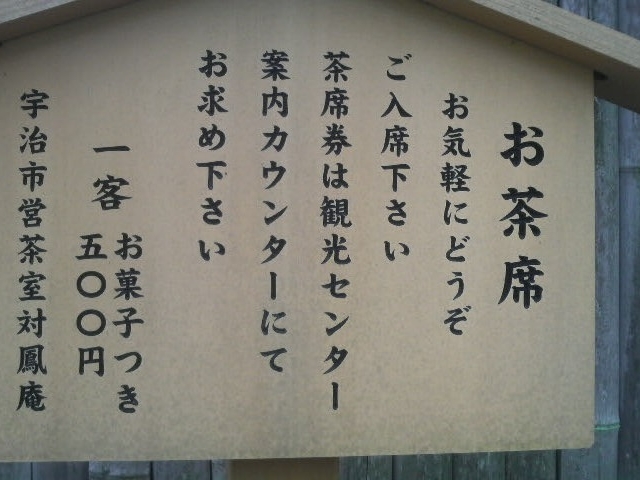 お茶席
お気軽にどうぞ
ご入席下さい
茶席券は観光センター
案内カウンターにて
お求め下さい
一客
お菓子つき
五〇〇円
宇治市営茶室対鳳庵